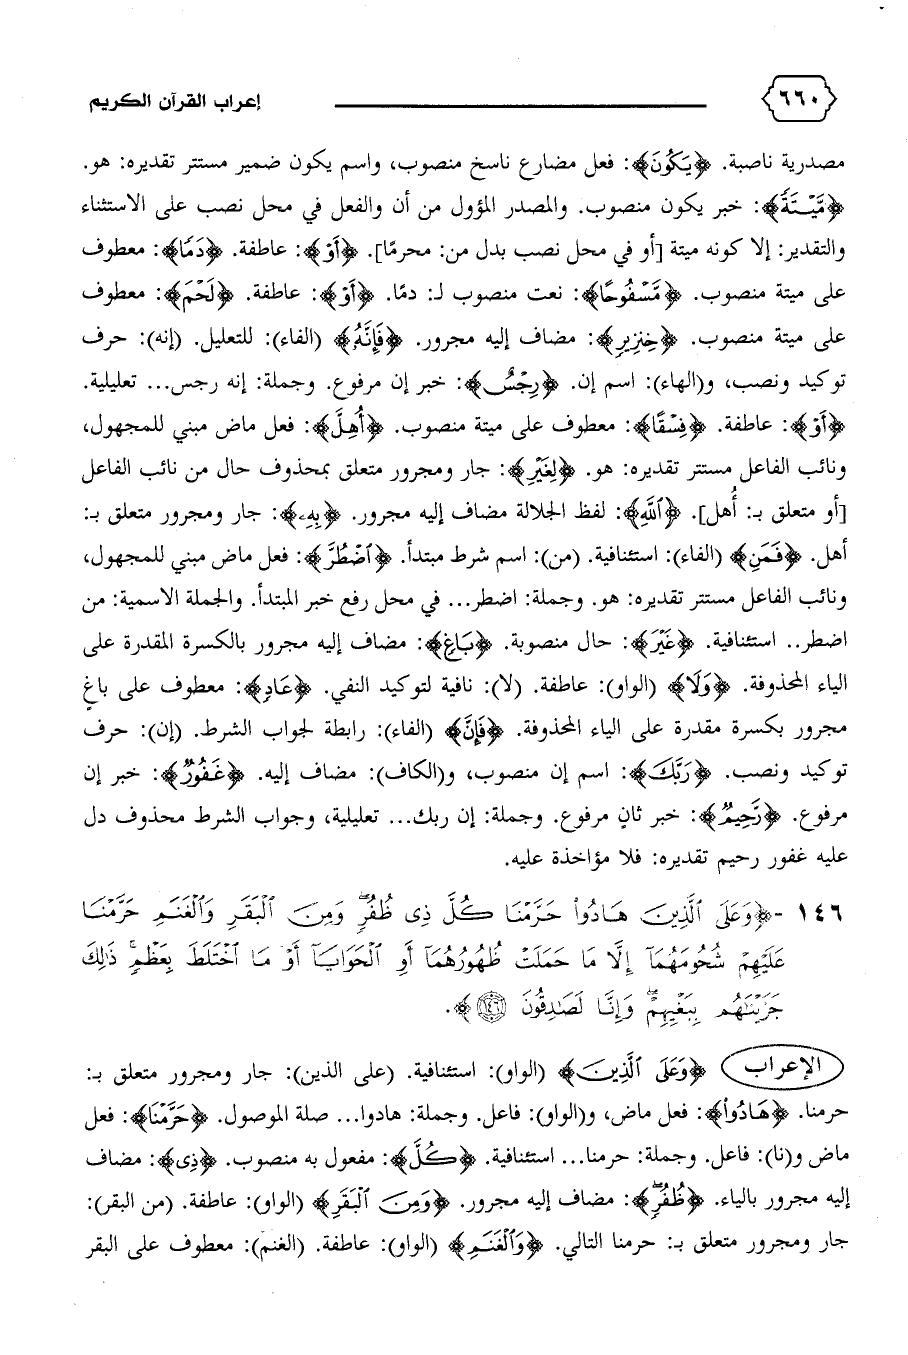 ٦٦٠ إعراب القرآن الكريم
مصدرية ناصبة. ﴿يَكُونَ﴾: فعل مضارع ناسخ منصوب، واسم يكون ضمير مستتر تقديره: هو.
﴿مَّيْتَةً﴾: خبر يكون منصوب. والمصدر المؤول من أن والفعل في محل نصب على الاستثناء
والتقدير: إلا كونه ميتة [أو في محل نصب بدل من: محرمًا]. ﴿أَوْ﴾: عاطفة. ﴿دَمًا﴾: معطوف
على ميتة منصوب. ﴿مَّسْفُوحًا﴾: نعت منصوب لـ: دمًا. ﴿أَوْ﴾: عاطفة. ﴿لَحْمَ﴾: معطوف
على ميتة منصوب. ﴿خِنزِيرٍ﴾: مضاف إليه مجرور. ﴿فَإِنَّهُ﴾ (الفاء): للتعليل. (إنه): حرف
توكيد ونصب، و(الهاء): اسم إن. ﴿رِجْسٌ﴾: خبر إن مرفوع. وجملة: إنه رجس... تعليلية.
﴿أَوْ﴾: عاطفة. ﴿فِسْقًا﴾: معطوف على ميتة منصوب. ﴿أُهِلَّ﴾: فعل ماض مبني للمجهول،
ونائب الفاعل مستتر تقديره: هو. ﴿لِغَيْرِ﴾: جار ومجرور متعلق بمحذوف حال من نائب الفاعل
[أو متعلق بـ: أُهل]. ﴿ٱللَّهِ﴾: لفظ الجلالة مضاف إليه مجرور. ﴿بِهِۦ﴾: جار ومجرور متعلق بـ:
أهل. ﴿فَمَنِ﴾ (الفاء): استئنافية. (من): اسم شرط مبتدأ. ﴿ٱضْطُرَّ﴾: فعل ماض مبني للمجهول،
ونائب الفاعل مستتر تقديره: هو. وجملة: اضطر... في محل رفع خبر المبتدأ. والجملة الاسمية: من
اضطر.. استئنافية. ﴿غَيْرَ﴾: حال منصوبة. ﴿بَاغٍ﴾: مضاف إليه مجرور بالكسرة المقدرة على
الياء المحذوفة. ﴿وَلَا﴾ (الواو): عاطفة. (لا): نافية لتوكيد النفي. ﴿عَادٍ﴾: معطوف على باغٍ
مجرور بكسرة مقدرة على الياء المحذوفة. ﴿فَإِنَّ﴾ (الفاء): رابطة لجواب الشرط. (إن): حرف
توكيد ونصب. ﴿رَبَّكَ﴾: اسم إن منصوب، و(الكاف): مضاف إليه. ﴿غَفُورٌ﴾: خبر إن
مرفوع. ﴿رَّحِيمٌ﴾: خبر ثانٍ مرفوع. وجملة: إن ربك... تعليلية، وجواب الشرط محذوف دل
عليه غفور رحيم تقديره: فلا مؤاخذة عليه.
١٤٦ -﴿وَعَلَى ٱلَّذِينَ هَادُوا۟ حَرَّمْنَا كُلَّ ذِى ظُفُرٍۖ وَمِنَ ٱلْبَقَرِ وَٱلْغَنَمِ حَرَّمْنَا
عَلَيْهِمْ شُحُومَهُمَآ إِلَّا مَا حَمَلَتْ ظُهُورُهُمَآ أَوِ ٱلْحَوَايَآ أَوْ مَا ٱخْتَلَطَ بِعَظْمٍۚ ذَٰلِكَ
جَزَيْنَٰهُم بِبَغْيِهِمْۖ وَإِنَّا لَصَٰدِقُونَ ١٤٦﴾.
الإعراب ﴿وَعَلَى ٱلَّذِينَ﴾ (الواو): استئنافية. (على الذين): جار ومجرور متعلق بـ:
حرمنا. ﴿هَادُوا۟﴾: فعل ماض، و(الواو): فاعل. وجملة: هادوا... صلة الموصول. ﴿حَرَّمْنَا﴾: فعل
ماض و(نا): فاعل. وجملة: حرمنا... استئنافية. ﴿كُلَّ﴾: مفعول به منصوب. ﴿ذِى﴾: مضاف
إليه مجرور بالياء. ﴿ظُفُرٍۖ﴾: مضاف إليه مجرور. ﴿وَمِنَ ٱلْبَقَرِ﴾ (الواو): عاطفة. (من البقر):
جار ومجرور متعلق بـ: حرمنا التالي. ﴿وَٱلْغَنَمِ﴾ (الواو): عاطفة. (الغنم): معطوف على البقر